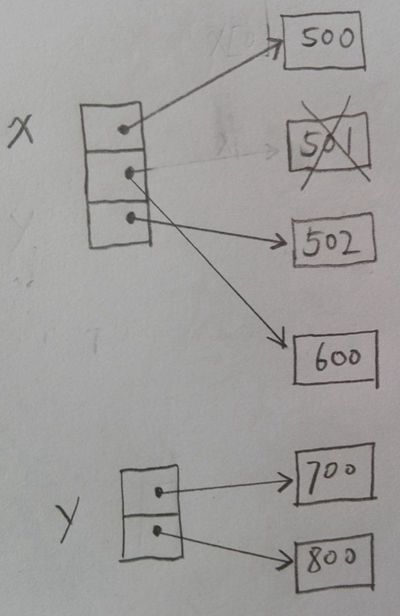 500
X
501
502
600
700
y
800